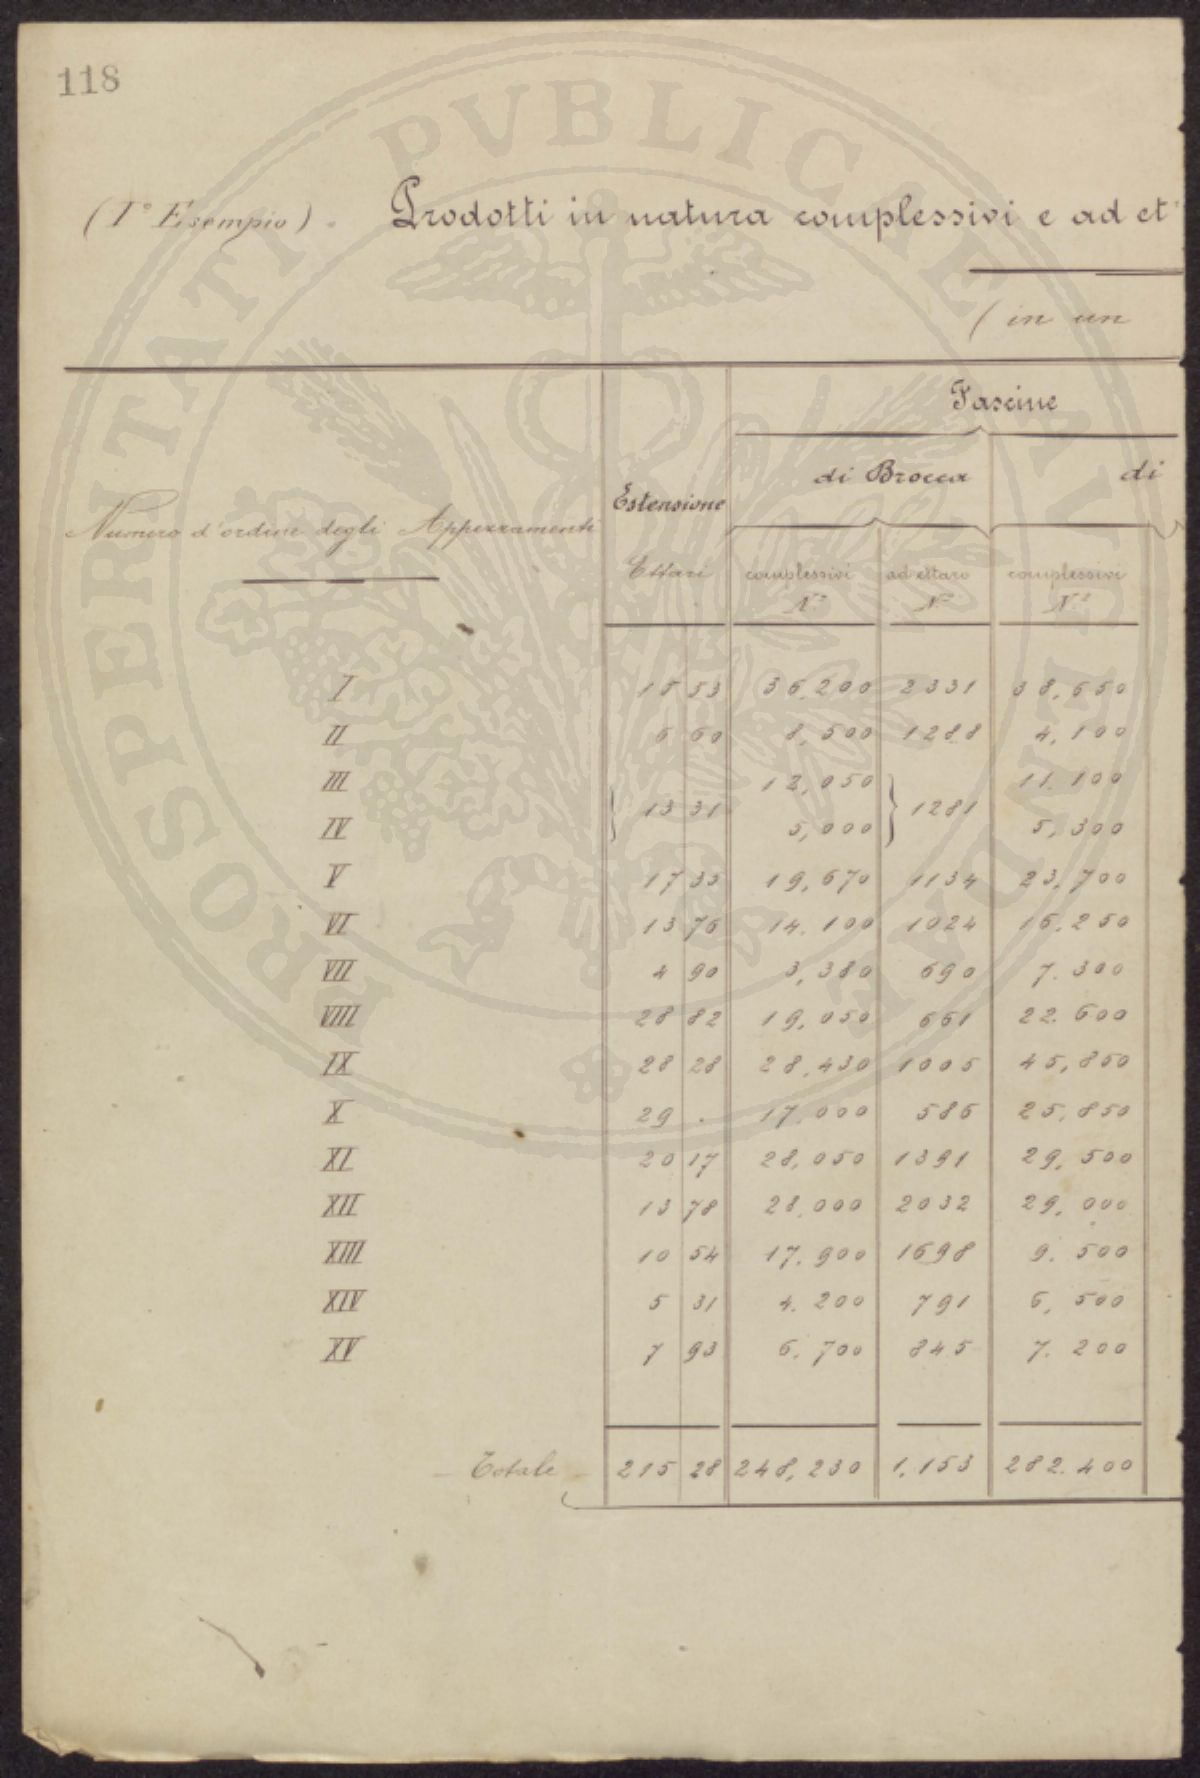 118
PROSPERITATI PVBLICAE AVGENDAE
(1° Esempio) - Prodotti in natura complessivi e ad et
(in un
Fascine
di Brocca di
Estensione
Numero d'ordine degli Appezzamenti
Ettari complessivi ad ettaro complessivi
N° N° N°
I 15 53 36,200 2331 38,650
II 6 60 8,500 1288 4,100
III 12,050 11.100
} 13 31 } 1281
IV 5,000 5,300
V 17 35 19,670 1134 23,700
VI 13 76 14.100 1024 16,250
VII 4 90 3,380 690 7.300
VIII 28 82 19,050 661 22.600
IX 28 28 28,430 1005 45,850
X 29 . 17.000 586 25,850
XI 20 17 28,050 1391 29,500
XII 13 78 28.000 2032 29,000
XIII 10 54 17.900 1698 9.500
XIV 5 31 4.200 791 6,500
XV 7 93 6.700 845 7.200
- Totale - 215 28 248,230 1,153 282.400